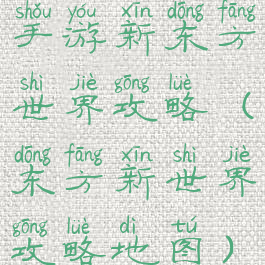 shǒu yóu xīn dōng fāng
手游新东方
shì jiè gōng lüè
世界攻略（
dōng fāng xīn shì jiè
东方新世界
gōng lüè dì tú
攻略地图）